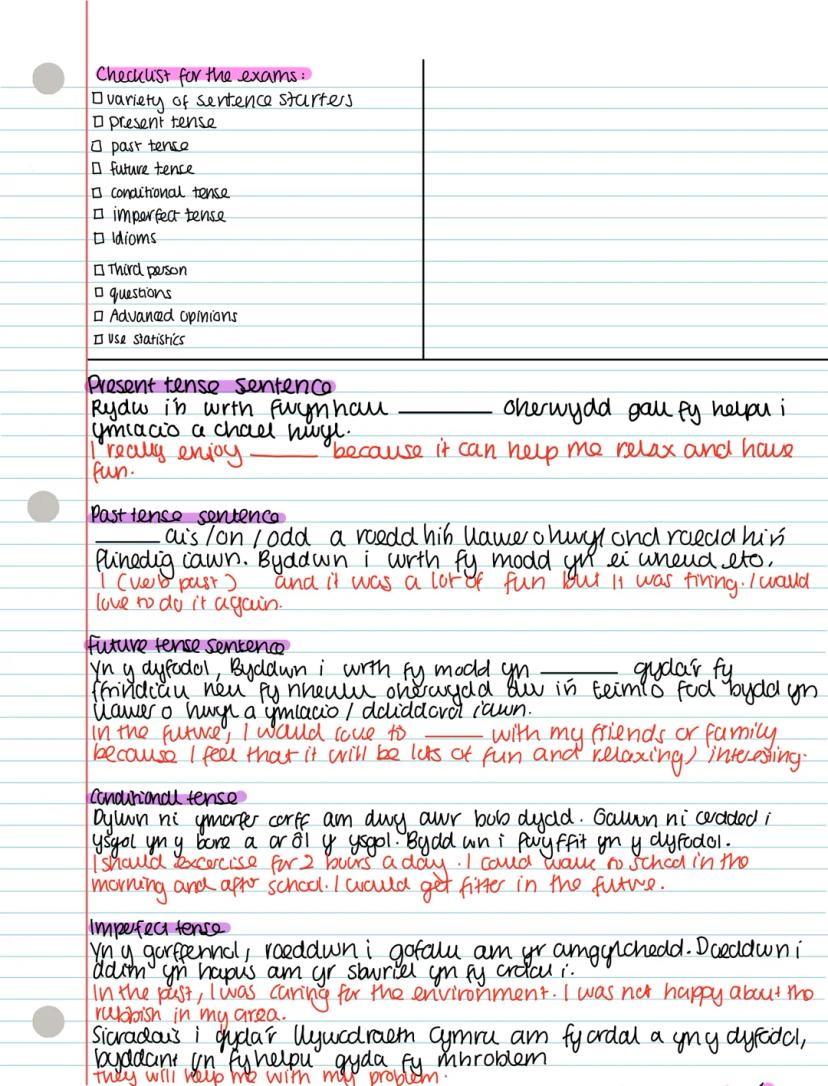 Checklist for the exams:
□ variety of sentence starters
□ present tense
□ past tense
□ future tense
□ conditional tense
□ imperfect tense
□ Idioms
□ Third person
□ questions
□ Advanced opinions
□ Use statistics
Present tense sentence
Rydw i'n wrth fwynhau ______ oherwydd gall fy helpu i
ymlacio a chael hwyl.
I really enjoy ______ because it can help me relax and have
fun.
Past tense sentence
______ ais/on/odd a roedd hi'n llawer o hwyl ond roedd hi'n
flinedig iawn. Byddwn i wrth fy modd yn ei wneud eto.
I (verb past) and it was a lot of fun but it was tiring. I would
love to do it again.
Future tense sentence
Yn y dyfodol, Byddwn i wrth fy modd yn ______ gyda'r fy
ffrindiau neu fy nheulu oherwydd dw i'n teimlo fod bydd yn
llawer o hwyl a ymlacio / ddiddorol iawn.
In the future, I would love to ______ with my friends or family
because I feel that it will be lots of fun and relaxing) interesting.
Conditional tense
Dylwn ni ymarfer corff am dwy awr bob dydd. Gallwn ni cerdded i
ysgol yn y bore a ar ôl y ysgol. Bydd wn i fwyffit yn y dyfodol.
I should excercise for 2 hours a day. I could walk to school in the
morning and after school. I would get fitter in the future.
Imperfect tense
Yn y gorffennol, roeddwn i gofalu am yr amgylchedd. Doeddwn i
ddim yn hapus am yr sbwriel yn fy ardal i.
In the past, I was caring for the environment. I was not happy about the
rubbish in my area.
Siaradais i gyda'r llywodraeth Cymru am fy ardal a yn y dyfodol,
byddant yn fy helpu gyda fy mhroblem
they will help me with my problem.